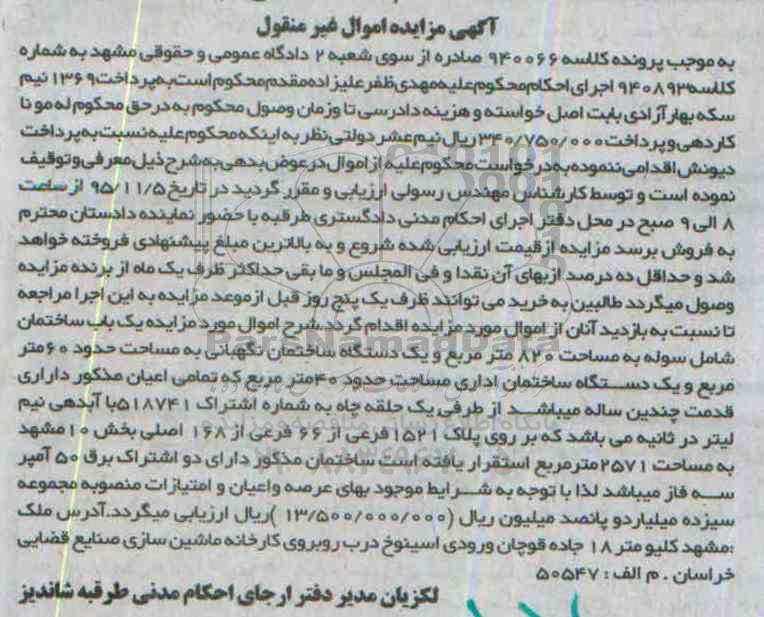 آگهی مزایده اموال غیر منقول
به موجب پرونده کلاسه ۹۴۰۰۶۶ صادره از سوی شعبه ۲ دادگاه عمومی و حقوقی مشهد به شماره
کلاسه ۹۴۰۸۹۳ اجرای احکام محکوم علیه مهدی ظفر علیزاده مقدم محکوم است به پرداخت ۱۳۶۹ نیم
سکه بهار آزادی بابت اصل خواسته و هزینه دادرسی تا وزمان وصول محکوم به در حق محکوم له مو نا
کاردهی و پرداخت ۳۴۰/۷۵۰/۰۰۰ ریال نیم عشر دولتی نظر به اینکه محکوم علیه نسبت به پرداخت
دیونش اقدامی ننموده به درخواست محکوم علیه از اموال در عوض بدهی به شرح ذیل معرفی و توقیف
نموده است و توسط کارشناس مهندس رسولی ارزیابی و مقرر گردید در تاریخ ۹۵/۱۱/۵ از ساعت
۸ الی ۹ صبح در محل دفتر اجرای احکام مدنی دادگستری طرقبه با حضور نماینده دادستان محترم
به فروش برسد مزایده از قیمت ارزیابی شده شروع و به بالاترین مبلغ پیشنهادی فروخته خواهد
شد و حداقل ده درصد از بهای آن نقدا و فی المجلس و ما بقی حداکثر ظرف یک ماه از برنده مزایده
وصول میگردد طالبین به خرید می توانند ظرف یک پنج روز قبل از موعد مزایده به این اجرا مراجعه
تا نسبت به بازدید آنان از اموال مورد مزایده اقدام گردد.شرح اموال مورد مزایده یک باب ساختمان
شامل سوله به مساحت ۸۲۰ متر مربع و یک دستگاه ساختمان نگهبانی به مساحت حدود ۶۰ متر
مربع و یک دستگاه ساختمان اداری مساحت حدود ۴۰ متر مربع که تمامی اعیان مذکور دارای
قدمت چندین ساله میباشد از طرفی یک حلقه چاه به شماره اشتراک ۵۱۸۷۴۱ با آبدهی نیم
لیتر در ثانیه می باشد که بر روی پلاک ۱۵۲۱ فرعی از ۶۶ فرعی از ۱۶۸ اصلی بخش ۱۰ مشهد
به مساحت ۲۵۷۱ مترمربع استقرار یافته است ساختمان مذکور دارای دو اشتراک برق ۵۰ آمپر
سه فاز میباشد لذا با توجه به شرایط موجود بهای عرصه واعیان و امتیازات منصوبه مجموعه
سیزده میلیاردو پانصد میلیون ریال (۱۳/۵۰۰/۰۰۰/۰۰۰ )ریال ارزیابی میگردد.آدرس ملک
:مشهد کلیو متر ۱۸ جاده قوچان ورودی اسینوخ درب روبروی کارخانه ماشین سازی صنایع قضایی
خراسان . م الف : ۵۰۵۴۷
لکزیان مدیر دفتر ارجای احکام مدنی طرقبه شاندیز
ParsNamadData